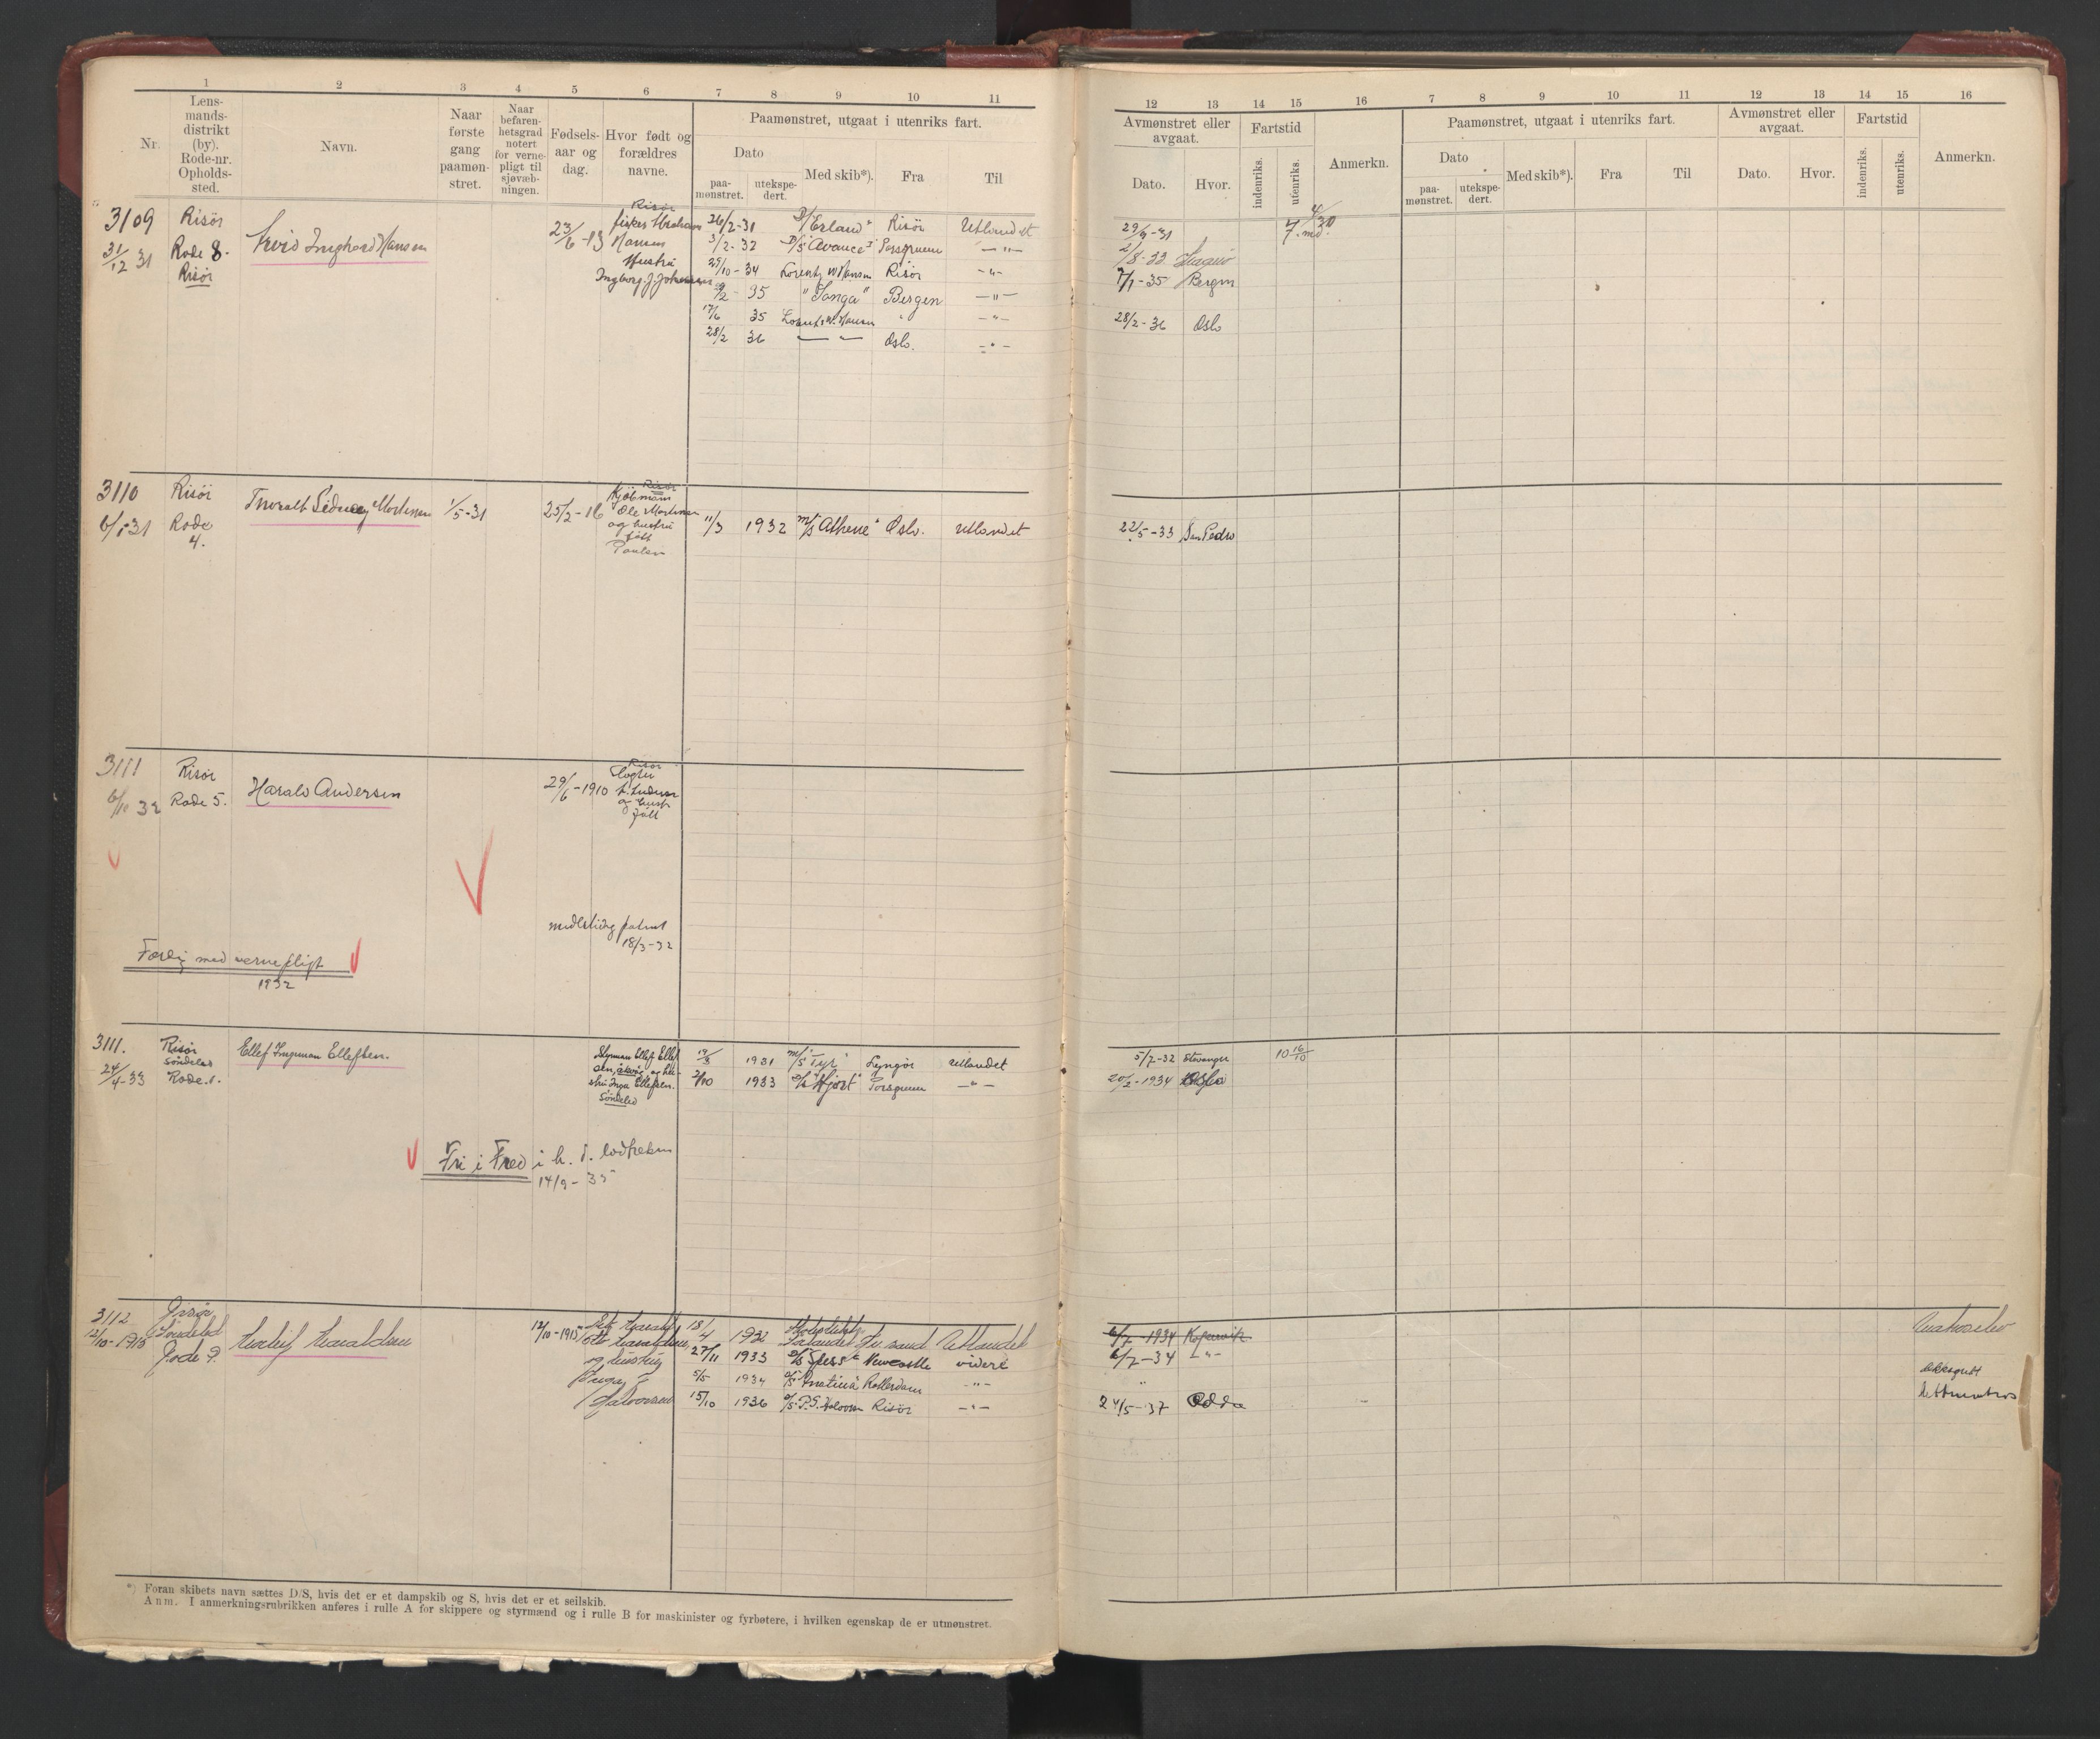 1 2 3 4 5 6 7 8 9 10 11
Nr.
Lens-
mands-
distrikt
(by).
Rode-nr.
Opholds-
sted.
Navn.
Naar
første
gang
paamøn-
stret.
Naar
befaren-
hetsgrad
notert
for verne-
pligt til
sjøvæb-
ningen.
Fødsels-
aar og
dag.
Hvor født og
forældres
navne.
Paamønstret, utgaat i utenriks fart.
Dato
paa-
mønstret.
utekspe-
dert.
Med skib*).
Fra
Til
12 13 14 15 16 7 8 9 10 11 12 13 14 15 16
Avmønstret eller
avgaat.
Dato. Hvor.
Fartstid
indenriks. utenriks.
Anmerkn.
Paamønstret, utgaat i utenriks fart.
Dato
paa-
mønstret.
utekspe-
dert.
Med skib*). Fra Til
Avmønstret eller
avgaat.
Dato. Hvor.
Fartstid
indenriks. utenriks.
Anmerkn.
3109
31/12 31
Risör
Rode 8.
Risör
Arvid Inghard Hansen
23/6-13
Risör
fisker Abraham
Hansen
Hustru
Ingborg J. Johansen
26/2-31 D/S "Erland" Risör Utlandet 29/9-31 7. md.
3/2-32 D/S "Avance I" Porsgrunn —"— 2/8-33
25/10-34 Lorentz W Hansen Risör —"— 7/1-35 Bergen
/2-35 "Songa" Bergen —"—
17/6 35 Lorentz W. Hansen " —"— 28/2-36 Oslo
28/2 36 — — Oslo. —"—
3110
Risör
Rode
4.
Thoralf Sidney Mortensen
1/5-31
25/2-16
Risör
Kjöbmann
Ole Mortensen
og hustru
født
Paulsen
11/3 1932 M/S "Athene" Oslo. Utlandet 22/5-33 San Pedro
3111
6/10 32
Risör
Rode 5.
Harald Andersen
29/6-1910
Risör
og hustr
født
midlertidig patent
18/3-32
Færdig med vernepligt
1932
3111.
24/4-33
Risör
Söndeled
Rode.1.
Ellef Ingeman Ellefsen.
Styrman Ellef Ellef
sen, og hu-
stru Inga Ellefsen.
Söndeled
19/8 1931 M/S "Tyr" Lyngör Utlandet 5/7-32 Stavanger 10 16/10
2/10 1933 D/S "Hjort" Porsgrunn —"— 20/2-1934 Oslo
Fri i Fred i h. t. lodtrekn
14/9-35
3112
12/10-1915
Risör
Söndeled
Rode 9.
Haraldsen
12/10-1915
og hustru
Inga
Halvorsen
18/4 1932 Utlandet 6/7-1934 Kopervik
27/11 1933 D/S Newcastle videre 6/7-34 —"—
5/5 1934 D/S Rotterdam —"—
15/10 1936 D/S P.G. Halvorsen Risör —"— 24/5-37 Odda
Lettmatros
*) Foran skibets navn sættes D/S, hvis det er et dampskib og S, hvis det er et seilskib.
Anm. I anmerkningsrubrikken anføres i rulle A for skippere og styrmænd og i rulle B for maskinister og fyrbøtere, i hvilken egenskap de er utmønstret.